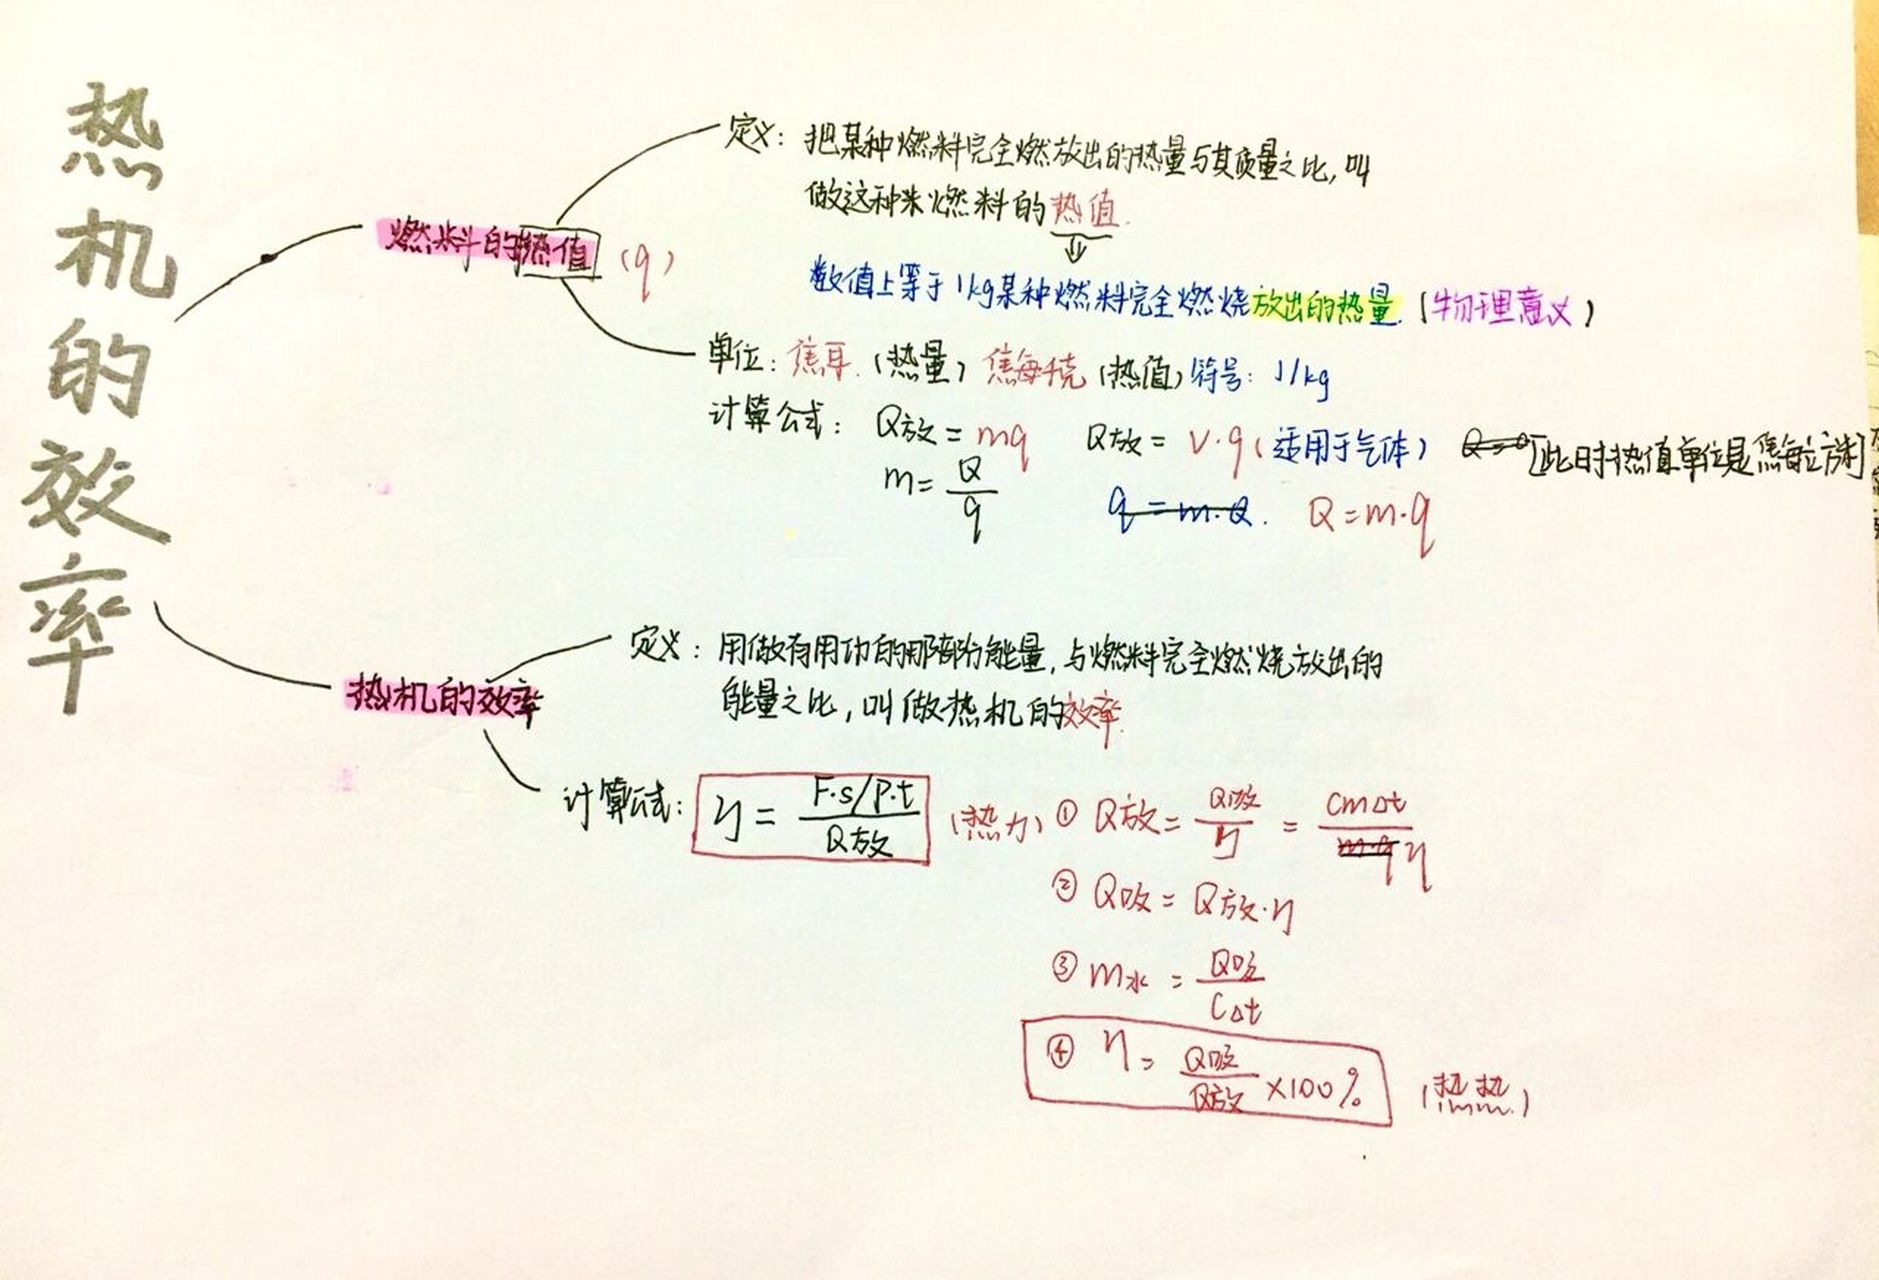 热机的效率
燃料的热值 (q)
定义：把某种燃料完全燃放出的热量与其质量之比，叫
做这种燃料的热值.
数值上等于1kg某种燃料完全燃烧放出的热量.(物理意义)
单位：焦耳.(热量) 焦每千克(热值)符号：J/kg
计算公式：Q放=mq Q放=V·q(适用于气体) [此时热值单位是焦每立方米]
m=Q/q q=m·Q. Q=m·q
热机的效率
定义：用做有用功的那部分能量，与燃料完全燃烧放出的
能量之比，叫做热机的效率.
计算公式：η=F·s/P·t/Q放 (热力) ①Q放=Q吸/η=cmΔt/η
②Q吸=Q放·η
③m水=Q吸/CΔt
④η=Q吸/Q放×100% (热热)